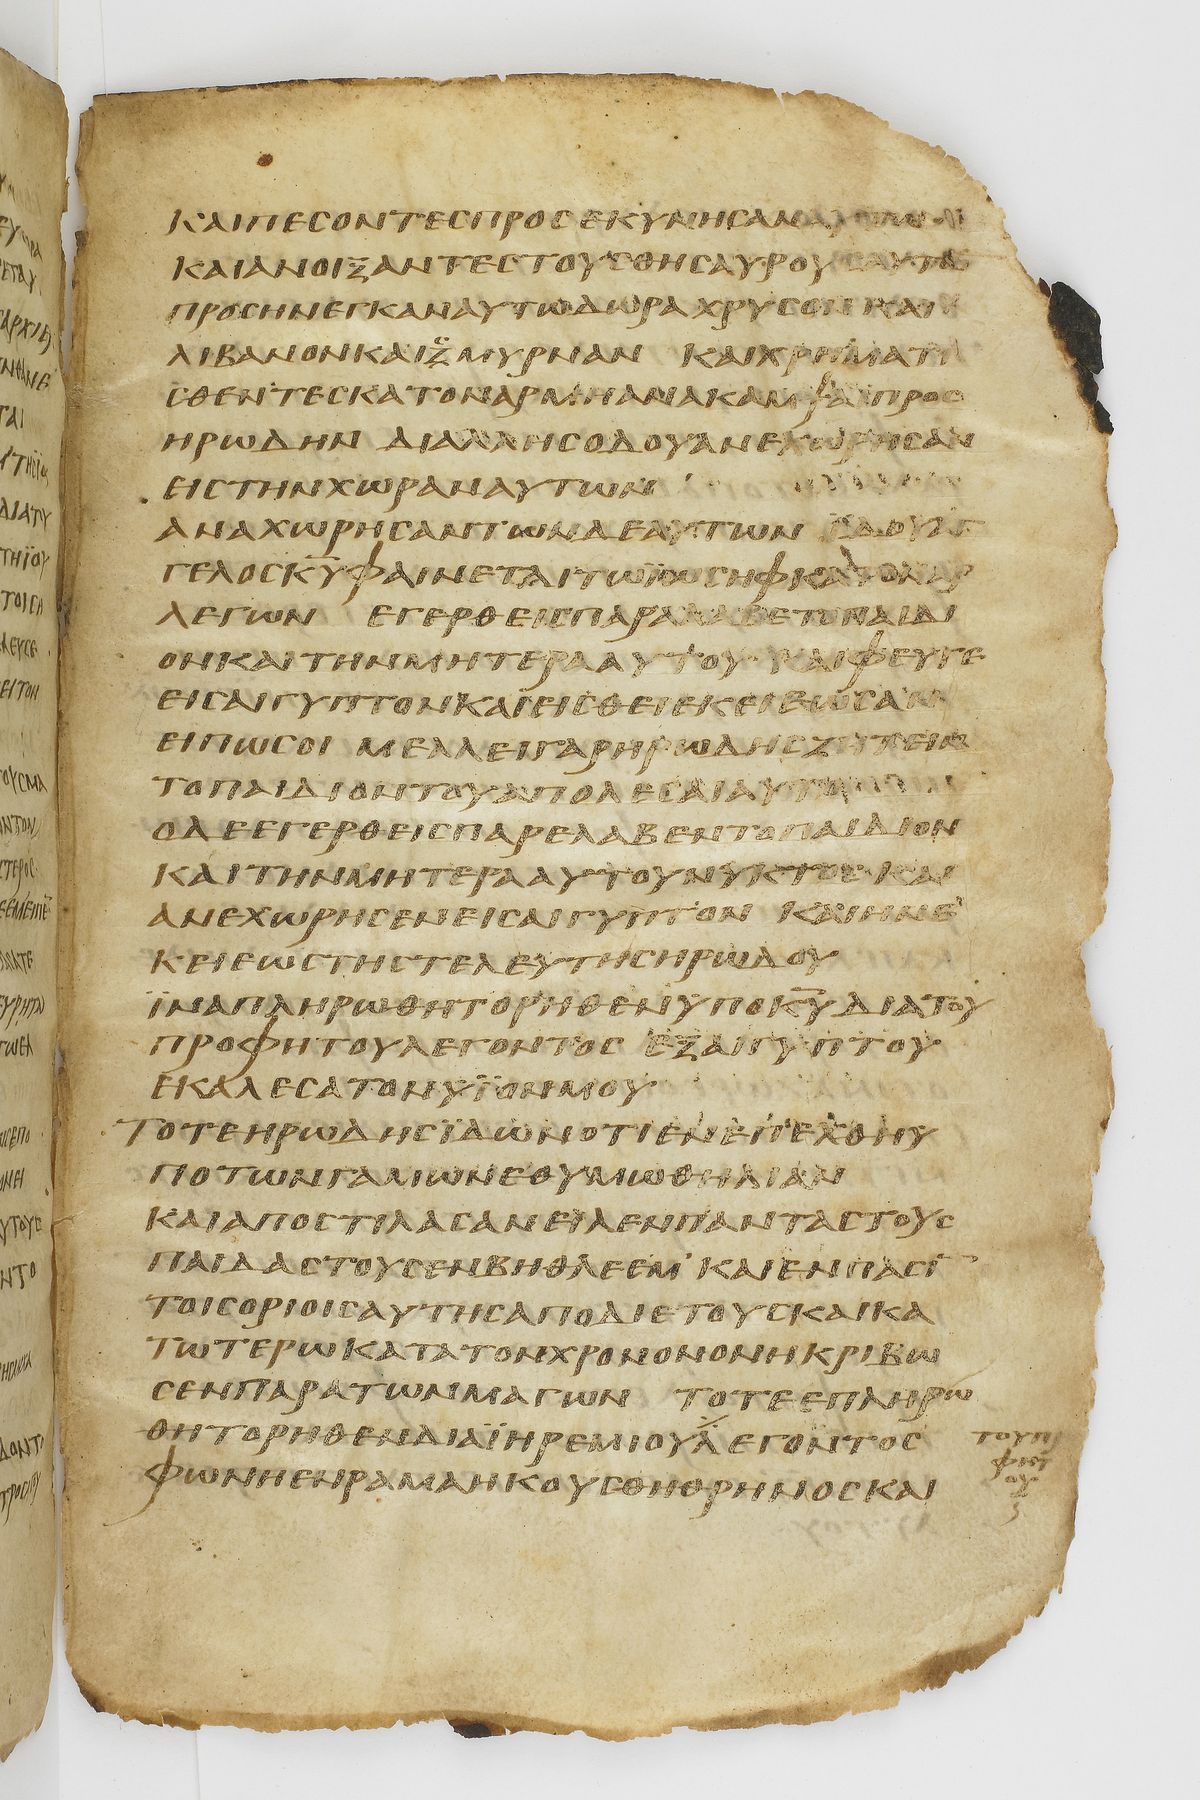 ΚΑΙΠΕCΟΝΤΕCΠΡΟCΕΚΥΝΗCΑΝ
ΚΑΙΑΝΟΙΞΑΝΤΕCΤΟΥCΘΗCΑΥΡΟΥCΑΥΤΩ
ΠΡΟCΗΝΕΓΚΑΝΑΥΤΩΔΩΡΑΧΡΥCΟΝΚΑΙ
ΛΙΒΑΝΟΝΚΑΙΖΜΥΡΝΑΝ ΚΑΙΧΡΗΜΑΤΙ
CΘΕΝΤΕCΚΑΤΟΝΑΡΜΗΑΝΑΚΑΜΨΑΙΠΡΟC
ΗΡΩΔΗΝ ΔΙΑΛΛΗCΟΔΟΥΑΝΕΧΩΡΗCΑΝ
ΕΙCΤΗΝΧΩΡΑΝΑΥΤΩΝ
ΑΝΑΧΩΡΗCΑΝΤΩΝΔΕΑΥΤΩΝ ΪΔΟΥΑΓ
ΓΕΛΟCΚ̅Υ̅ΦΑΙΝΕΤΑΙΤΩΪΩCΗΦΚΑΤΟΝΑΡ
ΛΕΓΩΝ ΕΓΕΡΘΕΙCΠΑΡΑΛΑΒΕΤΟΠΑΙΔΙ
ΟΝΚΑΙΤΗΝΜΗΤΕΡΑΑΥΤΟΥ ΚΑΙΦΕΥΓΕ
ΕΙCΑΙΓΥΠΤΟΝΚΑΙΕΙCΘΕΙΕΚΕΙΕΩCΑΝ
ΕΙΠΩCΟΙ ΜΕΛΛΕΙΓΑΡΗΡΩΔΗCΖΗΤΕΙΝ
ΤΟΠΑΙΔΙΟΝΤΟΥΑΠΟΛΕCΑΙΑΥΤΟ
ΟΔΕΕΓΕΡΘΕΙCΠΑΡΕΛΑΒΕΝΤΟΠΑΙΔΙΟΝ
ΚΑΙΤΗΝΜΗΤΕΡΑΑΥΤΟΥΝΥΚΤΟC ΚΑΙ
ΑΝΕΧΩΡΗCΕΝΕΙCΑΙΓΥΠΤΟΝ ΚΑΙΗΝΕ
ΚΕΙΕΩCΤΗCΤΕΛΕΥΤΗCΗΡΩΔΟΥ
ΪΝΑΠΛΗΡΩΘΗΤΟΡΗΘΕΝΥΠΟΚ̅Υ̅ΔΙΑΤΟΥ
ΠΡΟΦΗΤΟΥΛΕΓΟΝΤΟC ΕΞΑΙΓΥΠΤΟΥ
ΕΚΑΛΕCΑΤΟΝΥΪΟΝΜΟΥ
ΤΟΤΕΗΡΩΔΗCΪΔΩΝΟΤΙΕΝΕΠΕΧΘΗΥ
ΠΟΤΩΝΓΑΜΩΝΕΘΥΜΩΘΗΛΙΑΝ
ΚΑΙΑΠΟCΤΙΛΑCΑΝΕΙΛΕΝΠΑΝΤΑCΤΟΥC
ΠΑΙΔΑCΤΟΥCΕΝΒΗΘΛΕΕΜ ΚΑΙΕΝΠΑCΙ
ΤΟΙCΟΡΙΟΙCΑΥΤΗCΑΠΟΔΙΕΤΟΥCΚΑΙΚΑ
ΤΩΤΕΡΩΚΑΤΑΤΟΝΧΡΟΝΟΝΟΝΗΚΡΙΒΩ
CΕΝΠΑΡΑΤΩΝΜΑΓΩΝ ΤΟΤΕΕΠΛΗΡΩ
ΘΗΤΟΡΗΘΕΝΔΙΑΪΗΡΕΜΙΟΥΛΕΓΟΝΤΟC
ΤΟΥΠΡ
ΦΗΤ
ΟΥ
ΦΩΝΗΕΝΡΑΜΑΗΚΟΥCΘΗΘΡΗΝΟCΚΑΙ